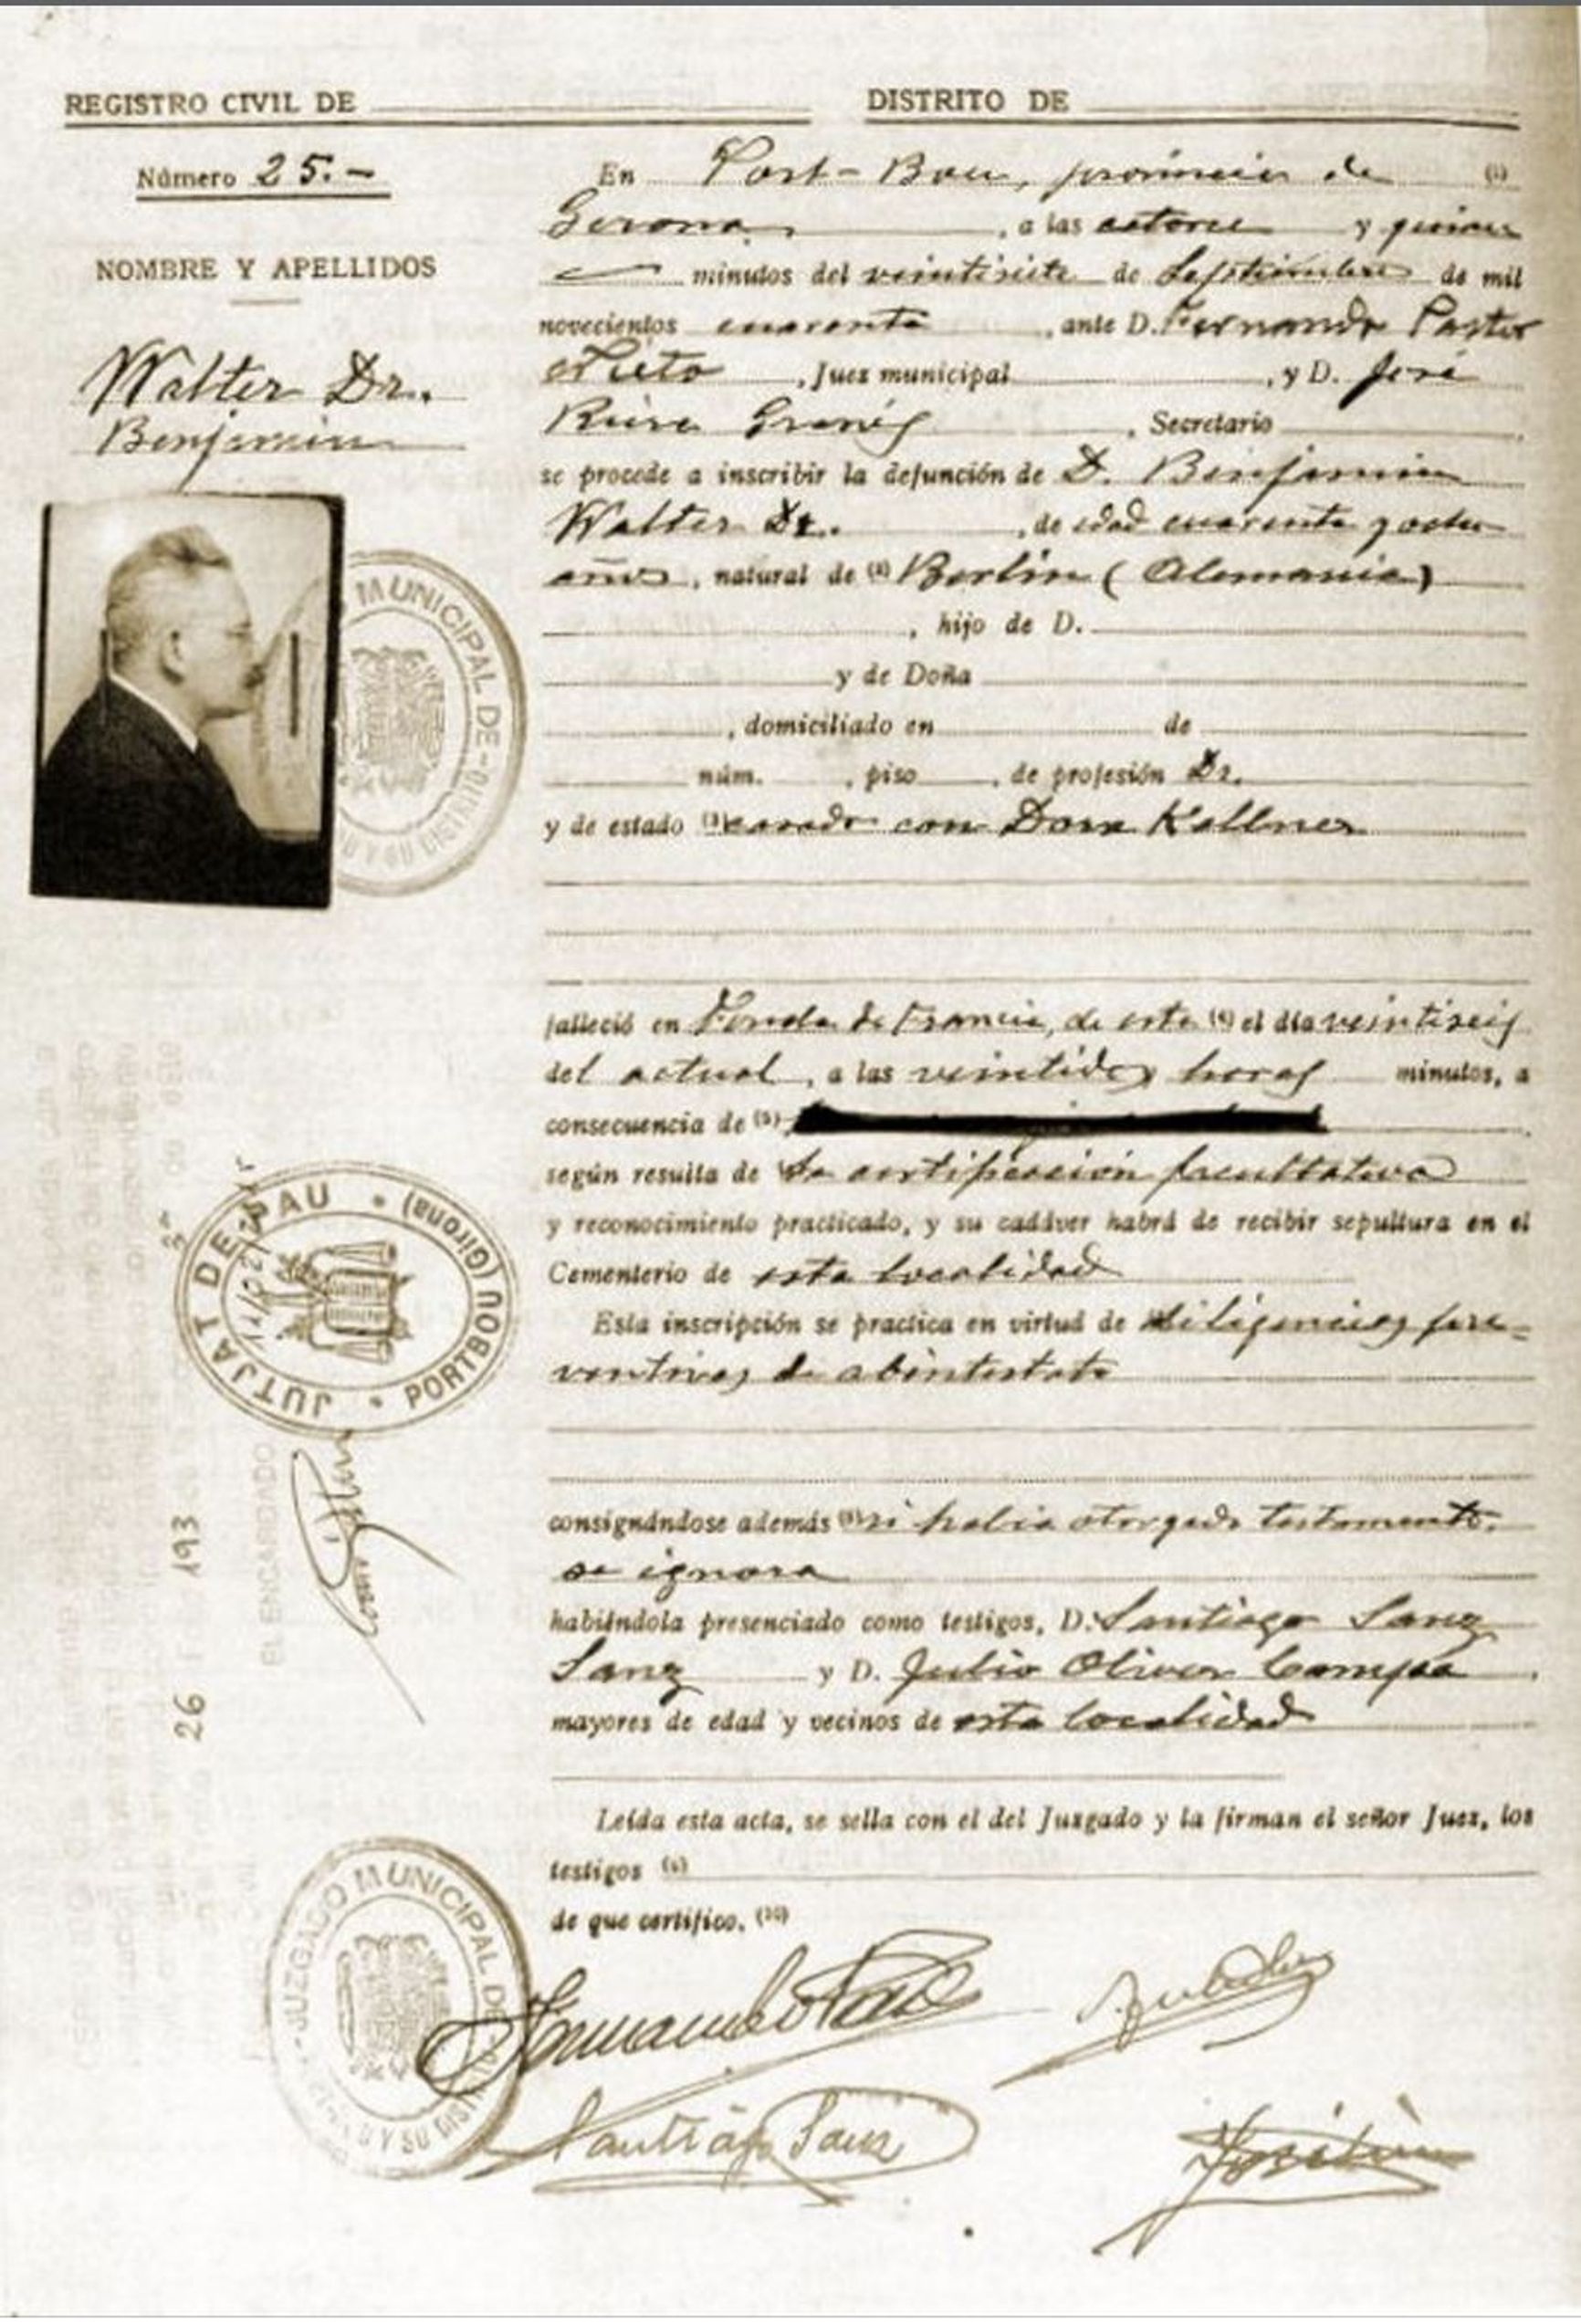 REGISTRO CIVIL DE
DISTRITO DE
Número 25.-
NOMBRE Y APELLIDOS
Walter Dr.
Benjamin
En Port-Bou, provincia de (1)
Gerona, a las catorce y quince
minutos del veintisiete de Septiembre de mil
novecientos cuarenta, ante D. Fernando Pastor
Nieto, Juez municipal, y D. José
Riera Granés, Secretario
se procede a inscribir la defunción de D. Benjamin
Walter Dr., de edad cuarenta y ocho
años, natural de (2) Berlin (Alemania)
, hijo de D.
y de Doña
, domiciliado en de
núm. , piso , de profesión Dr.
y de estado (3) casado con Dora Kellner
falleció en Fonda de Francia, de esta (4) el día veintiseis
del actual, a las veintidos horas minutos, a
consecuencia de (5)
según resulta de la certificación facultativa
y reconocimiento practicado, y su cadáver habrá de recibir sepultura en el
Cementerio de esta localidad
Esta inscripción se practica en virtud de diligencias pre-
ventivas de abintestato
consignándose además (8) si había otorgado testamento.
se ignora
habiéndola presenciado como testigos, D. Santiago Sanz
Sanz y D. Julio Oliver Campa
mayores de edad y vecinos de esta localidad
Leída esta acta, se sella con el del Juzgado y la firman el señor Juez, los
testigos
de que certifico. (10)
Santiago Sanz
MUNICIPAL DE
JUTJAT DE PAU • PORTBOU (Girona) •
EL ENCARGADO
26 193
JUZGADO MUNICIPAL DE
Y SU DIST